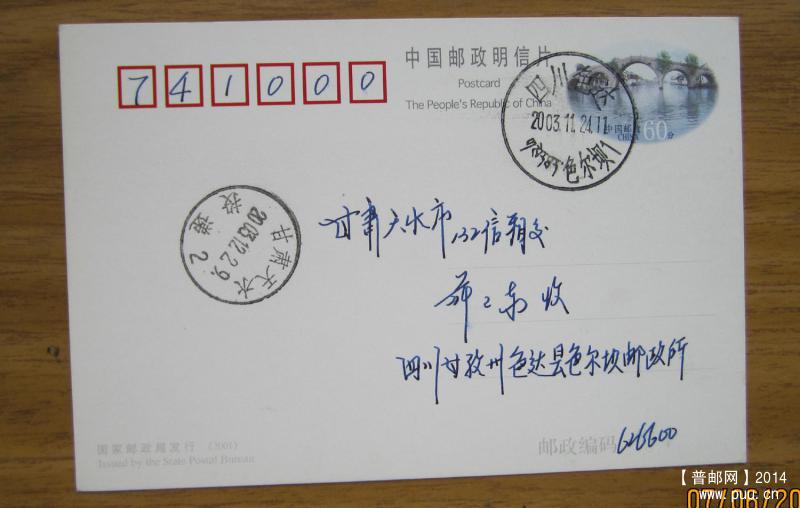 中国邮政明信片
Postcard
The People's Republic of China
741000
四川
2003.11.24.11
色尔坝1
中国邮政
CHINA
60分
甘肃天水
2003.12.2.9
投递
2
甘肃天水市132信箱交
收
四川甘孜州色达县色尔坝邮政所
国家邮政局发行 (2001)
Issued by the State Postal Bureau
邮政编码 626600
【普邮网】2014
www.pug.cn